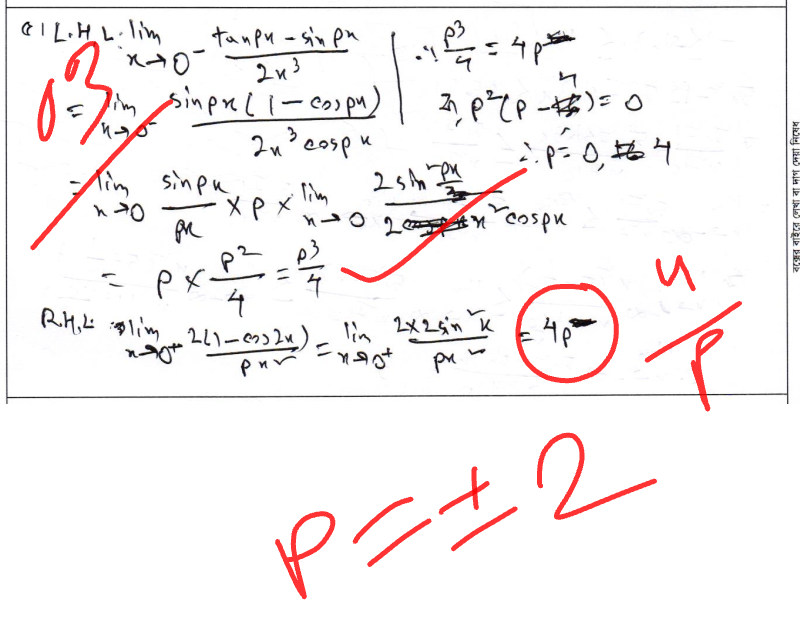 c | L.H.L. lim x→0⁻ (tanpx − sinpx)/2x³
= lim x→0⁻ sinpx(1 − cospx)/2x³cospx
= lim x→0 sinpx/px × p × lim x→0 2sin²(px/2)/2x²cospx
= p × p²/4 = p³/4
R.H.L lim x→0⁺ 2(1−cos2x)/px² = lim x→0⁺ 2×2sin²x/px² = 4p
∴ p³/4 = 4p
বা, p²(p − 4) = 0
∴ p = 0, 4
03
4/p
p = ± 2
বক্সের বাইরে লেখা বা দাগ দেয়া নিষেধ